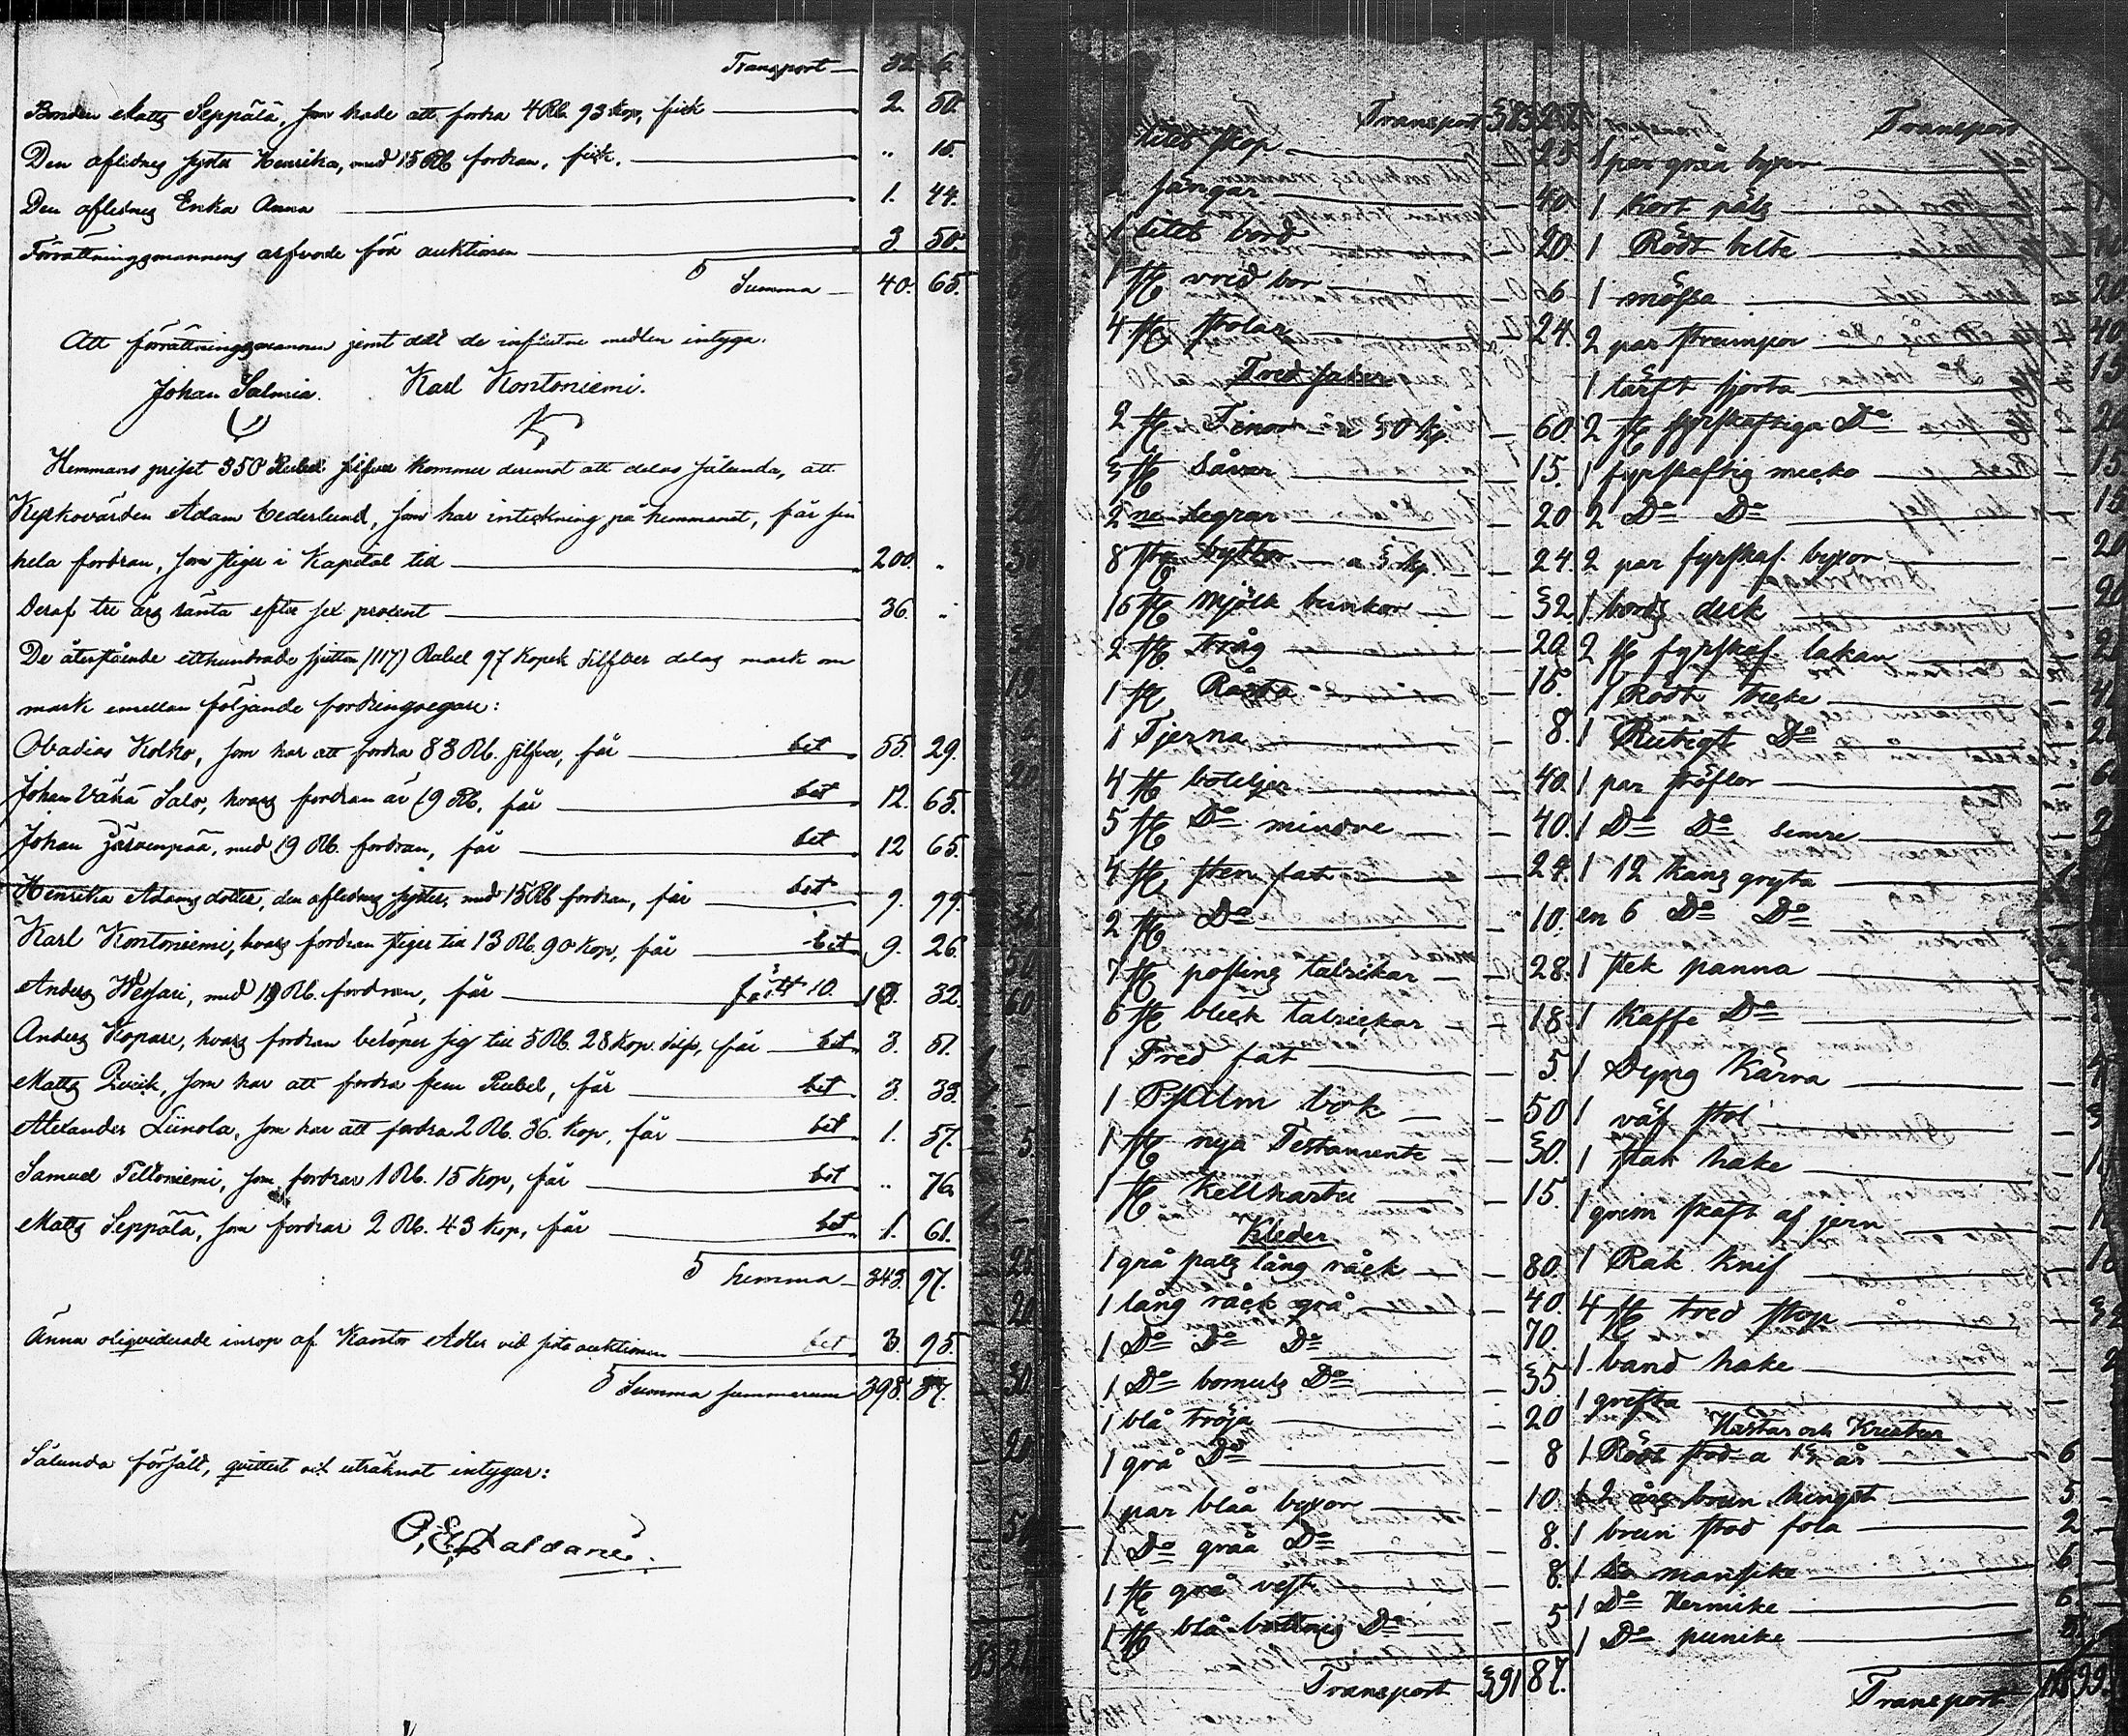 Transport — 32. 6.
Bonden Matts Seppälä, som hade att fordra 4 Rb. 93 kop, fick — 2. 50.
Den aflidnes syster Henrika, med 15 Rb fordran, fick. — .. 15.
Den aflidnes Enka Anna — 1. 44.
Förrättningsmannens arfvode för auktionen — 3 50.
Summa — 40. 65.
Att förrättningsmannen jemt delt de influtne medlen intyga.
Johan Salmia. Karl Kontoniemi.
Hemmans priset 350 Rubel silfver kommer deremot att delas sålunda, att
Kyrkovärden Adam Cederlund, som har inteckning på hemmanet, får sin
hela fordran, som stiger i Kapital till — 200. .
Deraf tre års ränta efter sex procent — 36. .
De återstående etthundrade sjutton (117) Rubel 97 Kopek Silfver delas mark om
mark emellan följande fordringsegare:
Obadias Kolko, som har att fordra 83 Rb. silfver, får — bet 55. 29.
Johan Vähä Salo, hvars fordran är 19 Rb, får — bet 12. 65.
Johan Järvenpää, med 19 Rb. fordran, får — bet 12 65.
Henrika Adams dotter, den aflidnes syster, med 15 Rb fordran, får — bet 9. 99.
Karl Kontoniemi, hvars fordran stiger till 13 Rb. 90 Kop, får — bet 9. 26.
Anders Wessari, med Rb. fordran, får — fått 10. 32.
Anders Kopare, hvars fordran belöper sig till 5 Rb. 28 Kop. silf, får — bet 3. 51.
Matts, som har att fordra fem Rubel, får — bet 3. 33.
Alexander Liinola, som har att fordra 2 Rb. 36. Kop, får — bet 1. 57.
Samuel Teltoniemi, som fordrar 1 Rb. 15 Kop, får — bet .. 76
Matts Seppälä, som fordrar 2 Rb. 43 Kop, får — bet 1. 61.
Summa — 343. 97.
Änna oliqviderade inrop af Kantor Adler vid sista auktionen — bet 3. 95.
Summa summarum 398. 57.
Sålunda försåld, qvittert och uträknat intygar:
Transport 385 27
litet skop — 25
sängar — 40.
1 litet bord — 20
1 st vrid bor — 6
4 st stolar — 24.
Tred saker
2 st Tinor a 30 kp — 60.
3 st Såvar — 15.
2 ne Legrar — 20
8 st byttor a 3 kp. — 24.
16 st mjölk bunkor — 32
2 st tråg — 20
1 st — 15.
1 Tjerna — 8.
4 st boteljer — 40.
5 st Do mindre — 40.
4 st sten fat — 24.
2 st Do — 10.
7 st postins talrikar — 28.
6 st bleck talrickar — 18.
1 Tred fat — 5.
1 Psalm bok — 50
1 st nya Testamente — 30.
1 st — 15.
Kleder
1 grå pals lång råck — 80.
1 lång råck grå — 40.
1 Do Do Do — 70.
1 Do bomuls Do — 35.
1 blå tröja — 20
1 grå Do — 8
1 par blåa byxor — 10
1 Do gråa Do — 8.
1 st grå vest — 8.
1 st blå Do — 5
Transport 391 87.
Transport
1 par gråa byxor
1 Kort päls
1 Rödt belte
1 mössa
2 par strumpor
1 lärft sjorta
2 st fyrskaftiga Do
1 fyrskaftig mecko
2 Do Do
2 par fyrskaf. byxor
1. bords duk
2 st fyrskaf. lakan
1 Rödt teke
1 Rutigt Do
1 par stöflor
1 Do Do semre
1 12 kans gryta
en 6 Do Do
1 stek panna
1 Kaffe Do
1 Dyng Kärra
1 väf stol
1 stak hake
1 grim skaft af jern
1 Rak Knif
4 st tred stop
1. band hake
1 grefta
Hästar och Kreatur
1 Rödt stod a 13 år — 6
1 2 års brun hingst — 5
1 brun stod fola — 2
1 ko mansike — 6.
1 Do Hermike — 6
1 Do punike
Transport